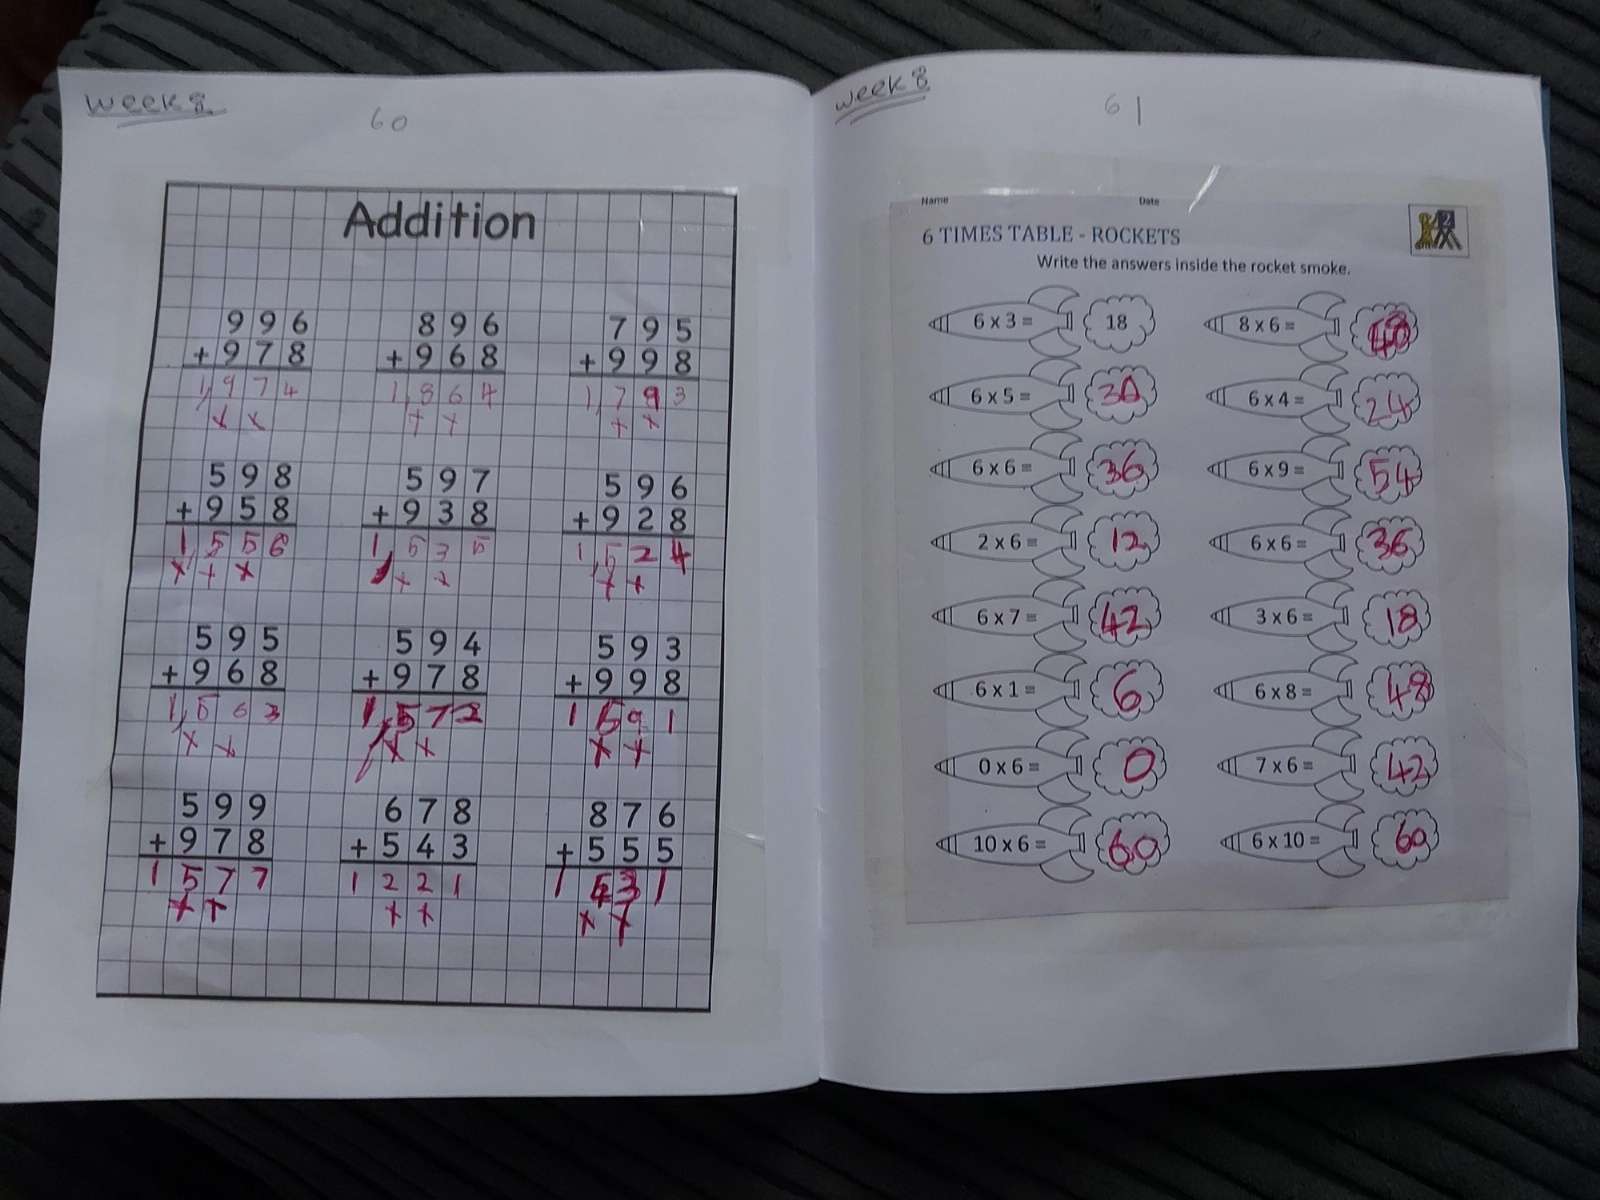 Week 8
60
Addition
996 896 795
+978 +968 +998
1,974 1,864 1,793
x x + x + x
598 597 596
+958 +938 +928
1,556 1,535 1,524
x + x x x x +
595 594 593
+968 +978 +998
1,563 1,572 1691
x x x x x x
599 678 876
+978 +543 +555
1577 1221 1431
x + + + x x
Week 8
61
Name Date
6 TIMES TABLE - ROCKETS
Write the answers inside the rocket smoke.
6 x 3 = 18 8 x 6 = 48
6 x 5 = 30 6 x 4 = 24
6 x 6 = 36 6 x 9 = 54
2 x 6 = 12 6 x 6 = 36
6 x 7 = 42 3 x 6 = 18
6 x 1 = 6 6 x 8 = 48
0 x 6 = 0 7 x 6 = 42
10 x 6 = 60 6 x 10 = 60